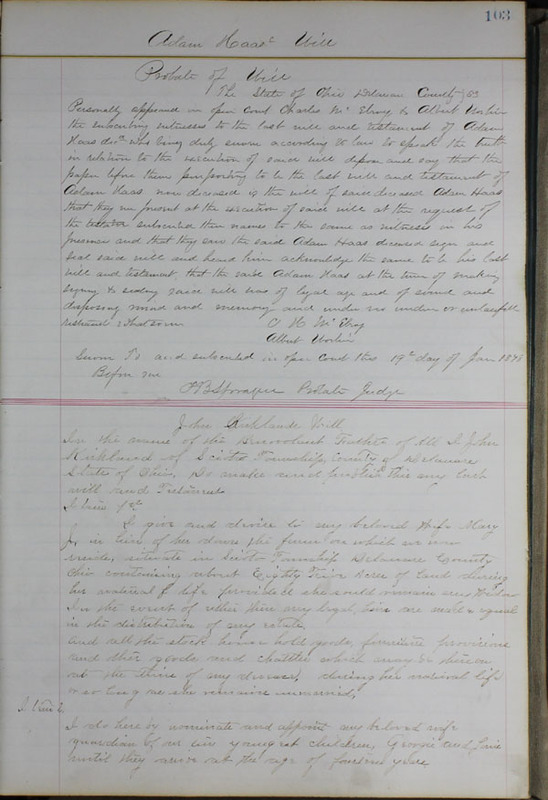 103
Adam Haas' Will
Probate of Will
The State of Ohio Delaware County SS
Personally appeared in open Court Charles Mc Elroy & Albert
the subscribing witnesses to the last will and testament of Adam
Haas decd who being duly sworn according to law to speak the truth
in relation to the execution of said will depose and say that the
paper before them purporting to be the last will and testament of
Adam Haas now deceased is the will of said deceased Adam Haas
that they were present at the execution of said will at the request of
the testator subscribed their names to the same as witness in his
presence and that they saw the said Adam Haas deceased sign and
seal said will and heard him acknowledge the same to be his last
will and testament, that the said Adam Haas at the time of making
signing & sealing said will was of legal age and of sound and
disposing mind and memory and under no undue or unlawful
restraint whatsoever C H Mc Elroy
Albert
Sworn To and subscribed in open Court this 19th day of Jan
Before me
Probate Judge
John Kirklands Will
In the name of the Benevolent Father of All I John
Kirkland of Scioto Township County of Delaware
State of Ohio, Do make and publish this my last
will and Testament
Item 1st
I give and devise to my beloved Wife Mary
J, in lieu of her dower the farm on which we now
reside, situate in Scioto Township Delaware County
Ohio containing about Eighty Acres of land during
her natural life provided she should remain my Widow
In the event of
in the distribution of my estate
and all the stock house hold goods, furniture provisions
and other goods and chattles which may be thereon
at the time of my decease, during her natural life
so long as she remains unmarried,
Item 2
I do hereby nominate and appoint my beloved wife
guardian of our youngest children, and
until they arrive at the age of years